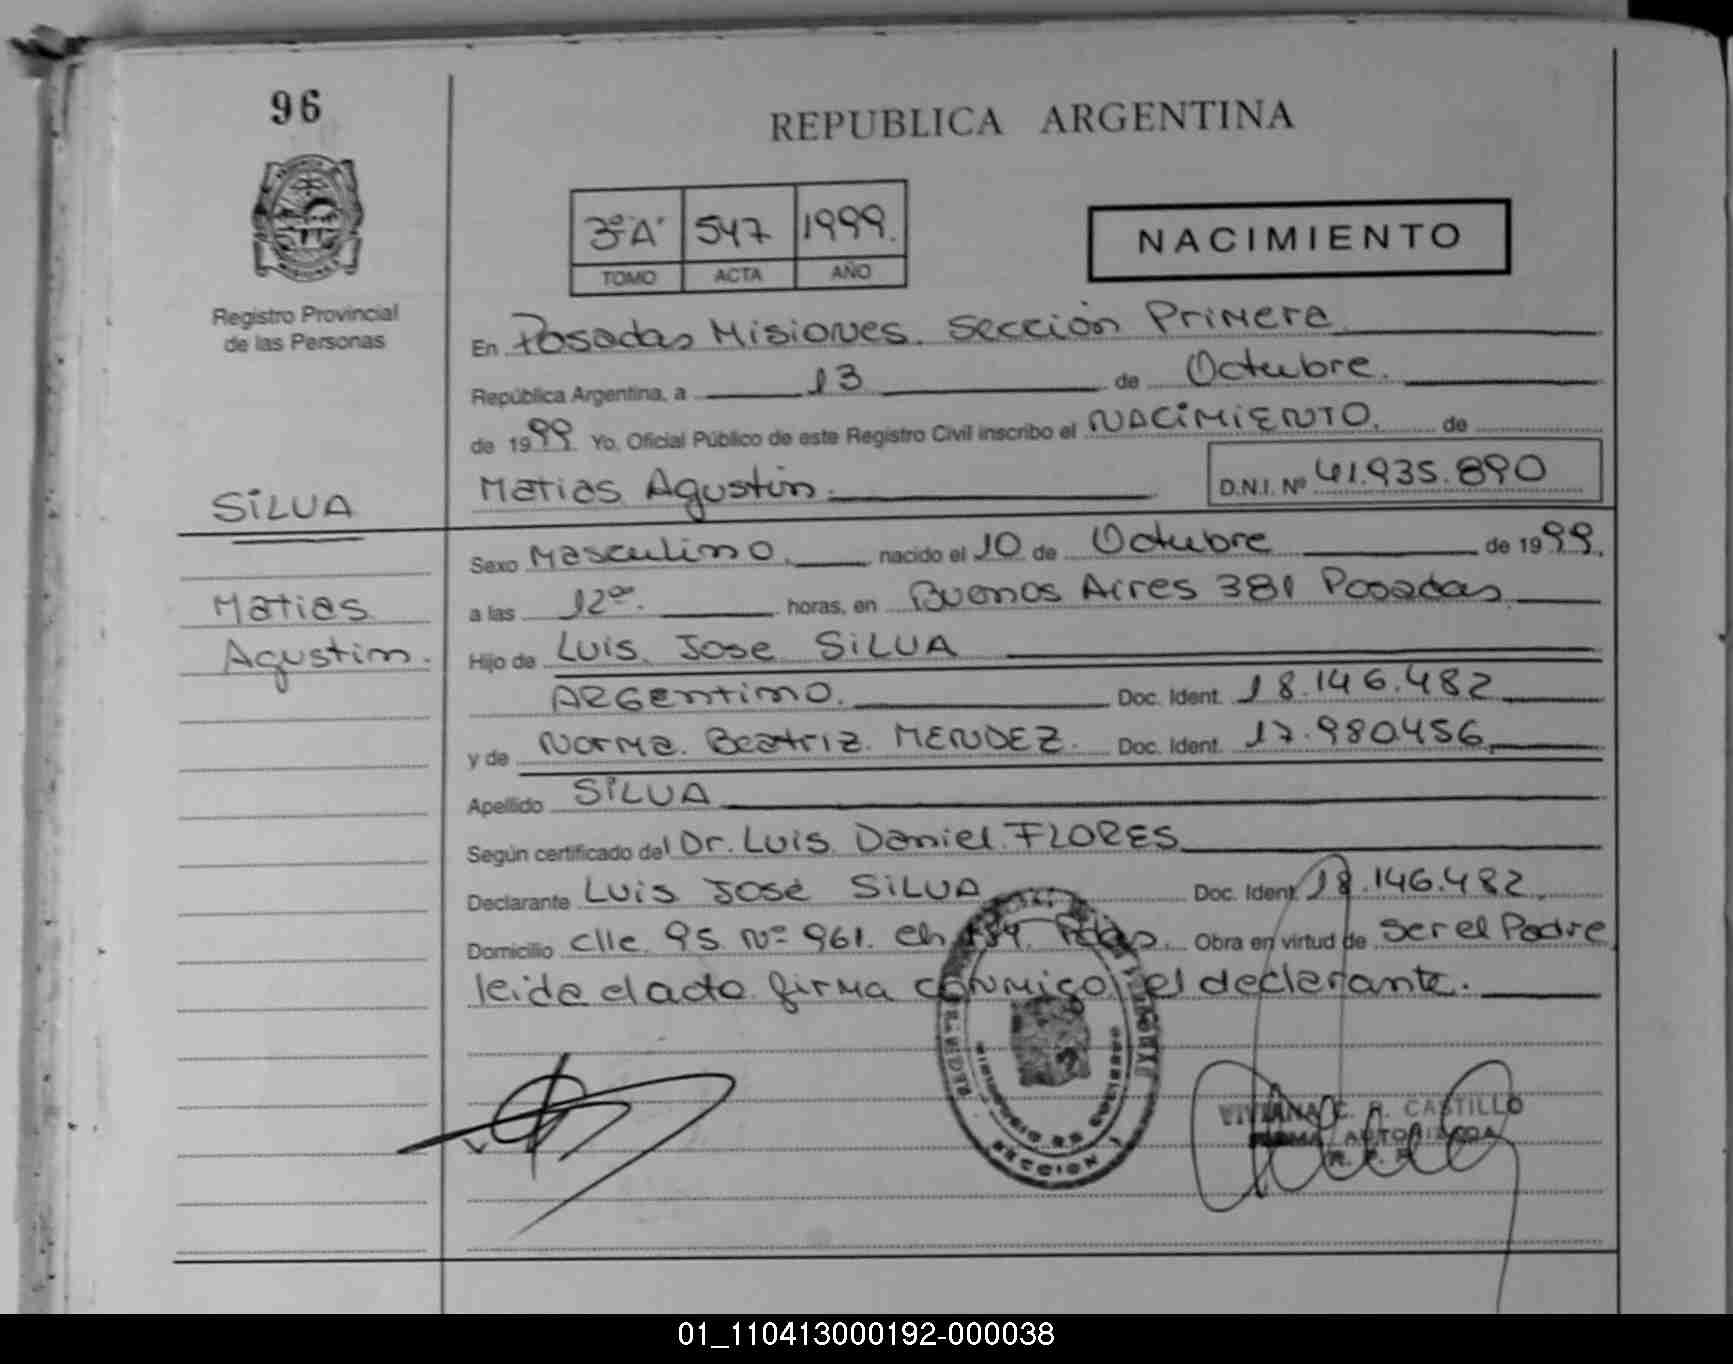 96
REPUBLICA ARGENTINA
3º "A" 547 1999.
TOMO ACTA AÑO
NACIMIENTO
Registro Provincial
de las Personas
En Posadas Misiones. Sección Primera
República Argentina, a 13 de Octubre.
de 1999 Yo, Oficial Público de este Registro Civil inscribo el NACIMIENTO. de
Matias Agustin. D.N.I. Nº 41.935.890
SILVA
Sexo Masculino. nacido el 10 de Octubre de 1999.
Matias
a las 12⁰⁰. horas, en Buenos Aires 381 Posadas
Agustin.
Hijo de Luis Jose SILVA
ARGentino. Doc. Ident. 18.146.482
y de Norma Beatriz MENDEZ. Doc. Ident. 17.980.456
Apellido SILVA
Según certificado del Dr. Luis Daniel FLORES
Declarante Luis José SILVA Doc. Ident. 18.146.482.
Domicilio clle. 95 Nº 961. Ch Pdas. Obra en virtud de ser el Padre
leida el acta firma conmigo el declarante.
MINISTERIO DE GOBIERNO
SECCION 1
VIVIANA C. R. CASTILLO
FIRMA AUTORIZADA
R. P. P.
01_110413000192-000038